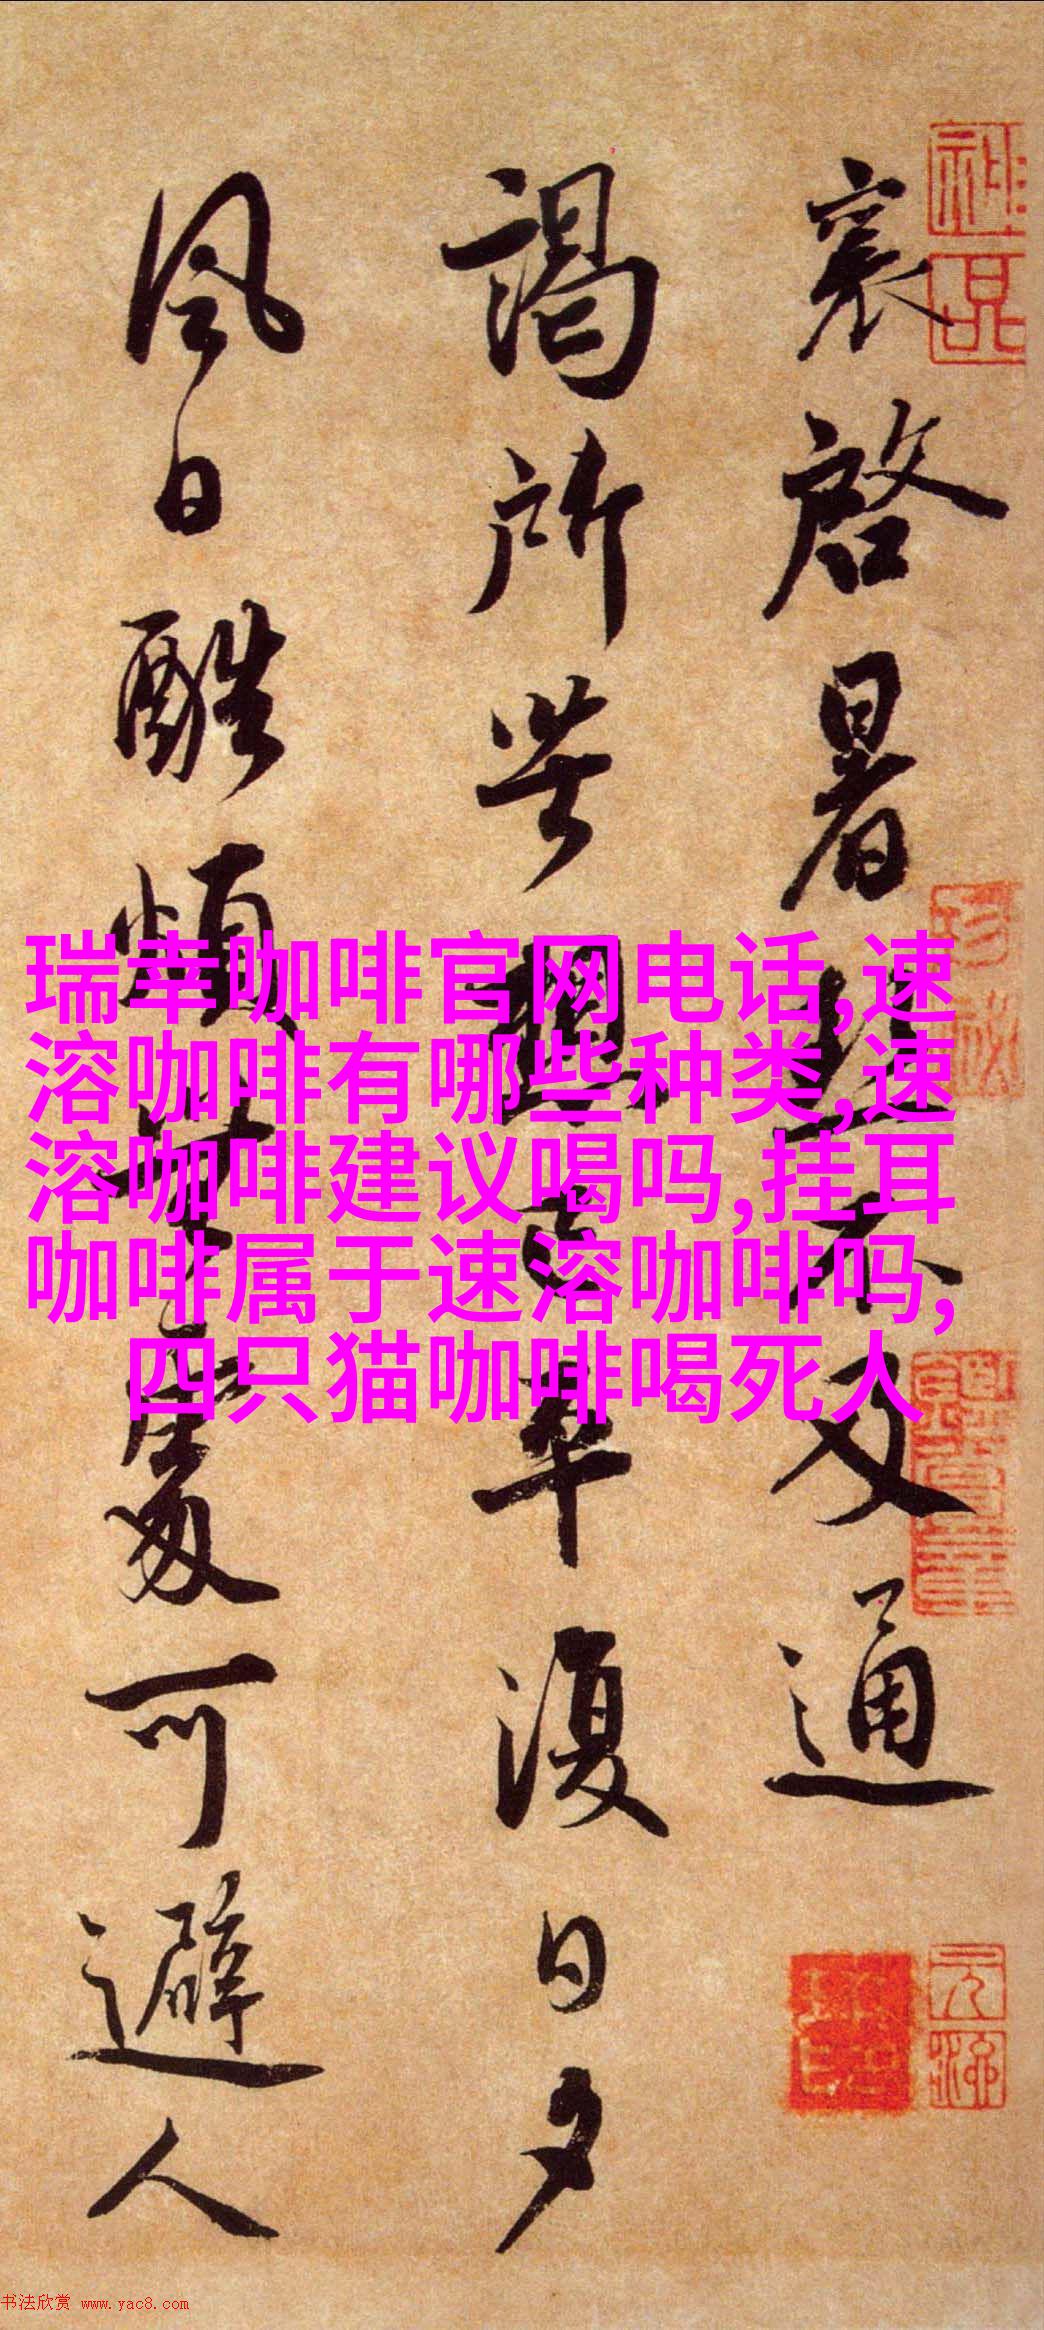 襄啓暑熱不及通
謁所苦想已平復日夕
風日酷煩無處可避人
瑞幸咖啡官网电话,速
溶咖啡有哪些种类,速
溶咖啡建议喝吗,挂耳
咖啡属于速溶咖啡吗,
四只猫咖啡喝死人
书法欣赏 www.yac8.com